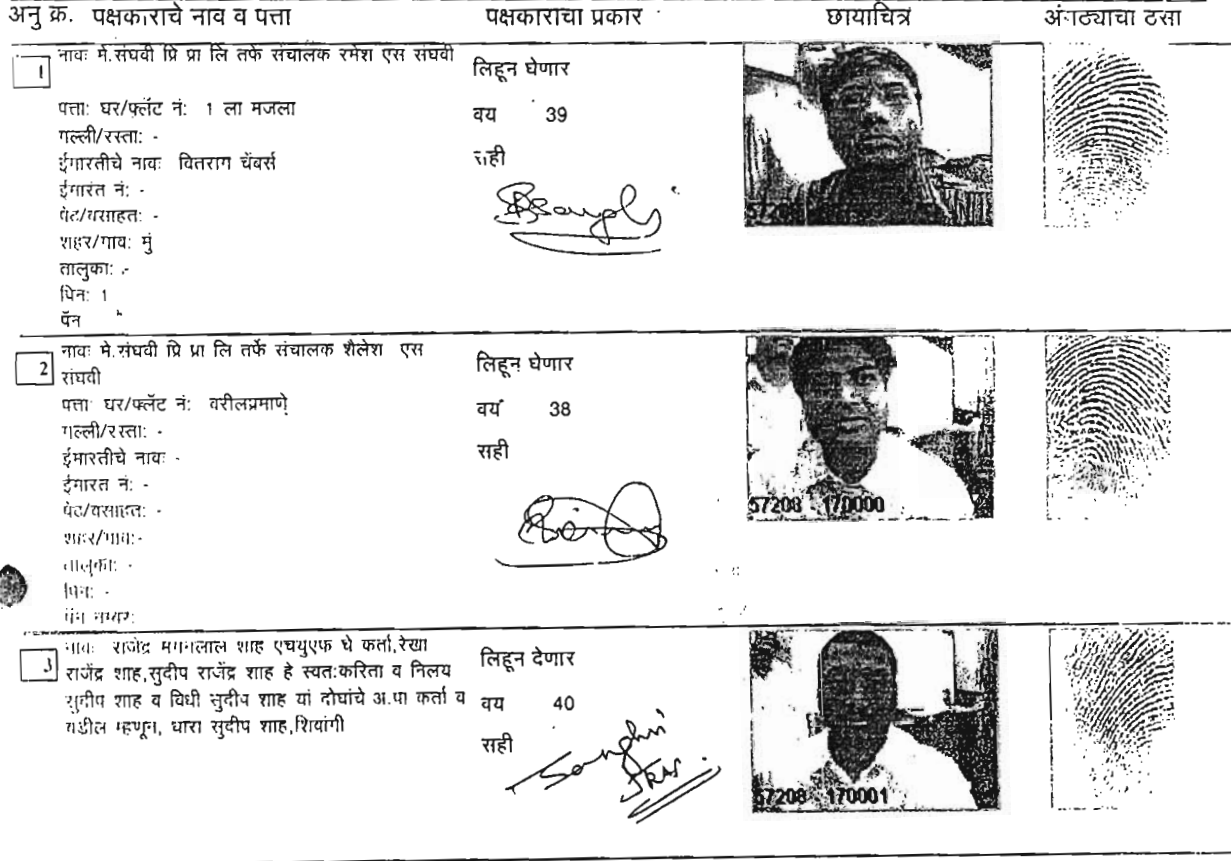 अनु क्र. पक्षकाराचे नाव व पत्ता पक्षकाराचा प्रकार छायाचित्र अंगठ्याचा ठसा
1 नावः मे.संघवी प्रि प्रा लि तर्फे संचालक रमेश एस संघवी
लिहून घेणार
पत्ताः घर/फ्लॅट नंः 1 ला मजला
वय 39
गल्ली/रस्ताः -
ईमारतीचे नावः वितराग चेंबर्स
सही
ईमारत नंः -
पेठ/वसाहतः -
शहर/गावः मुं
तालुकाः -
पिनः 1
पॅन
Sanghvi
57208
2 नावः मे.संघवी प्रि प्रा लि तर्फे संचालक शैलेश एस
संघवी
लिहून घेणार
पत्ताः घर/फ्लॅट नंः वरीलप्रमाणे
वय 38
गल्ली/रस्ताः -
ईमारतीचे नावः -
सही
ईमारत नंः -
पेठ/वसाहतः -
शहर/गावः-
तालुकाः -
पिनः -
पॅन नम्बरः
57208 170000
3 नावः राजेंद्र मगनलाल शाह एचयुएफ चे कर्ता,रेखा
लिहून देणार
राजेंद्र शाह,सुदीप राजेंद्र शाह हे स्वतःकरिता व निलय
सुदीप शाह व विधी सुदीप शाह यां दोघांचे अ.पा कर्ता व
वय 40
वडील म्हणून, धारा सुदीप शाह,शिवांगी
सही
Sanghvi
57208 170001